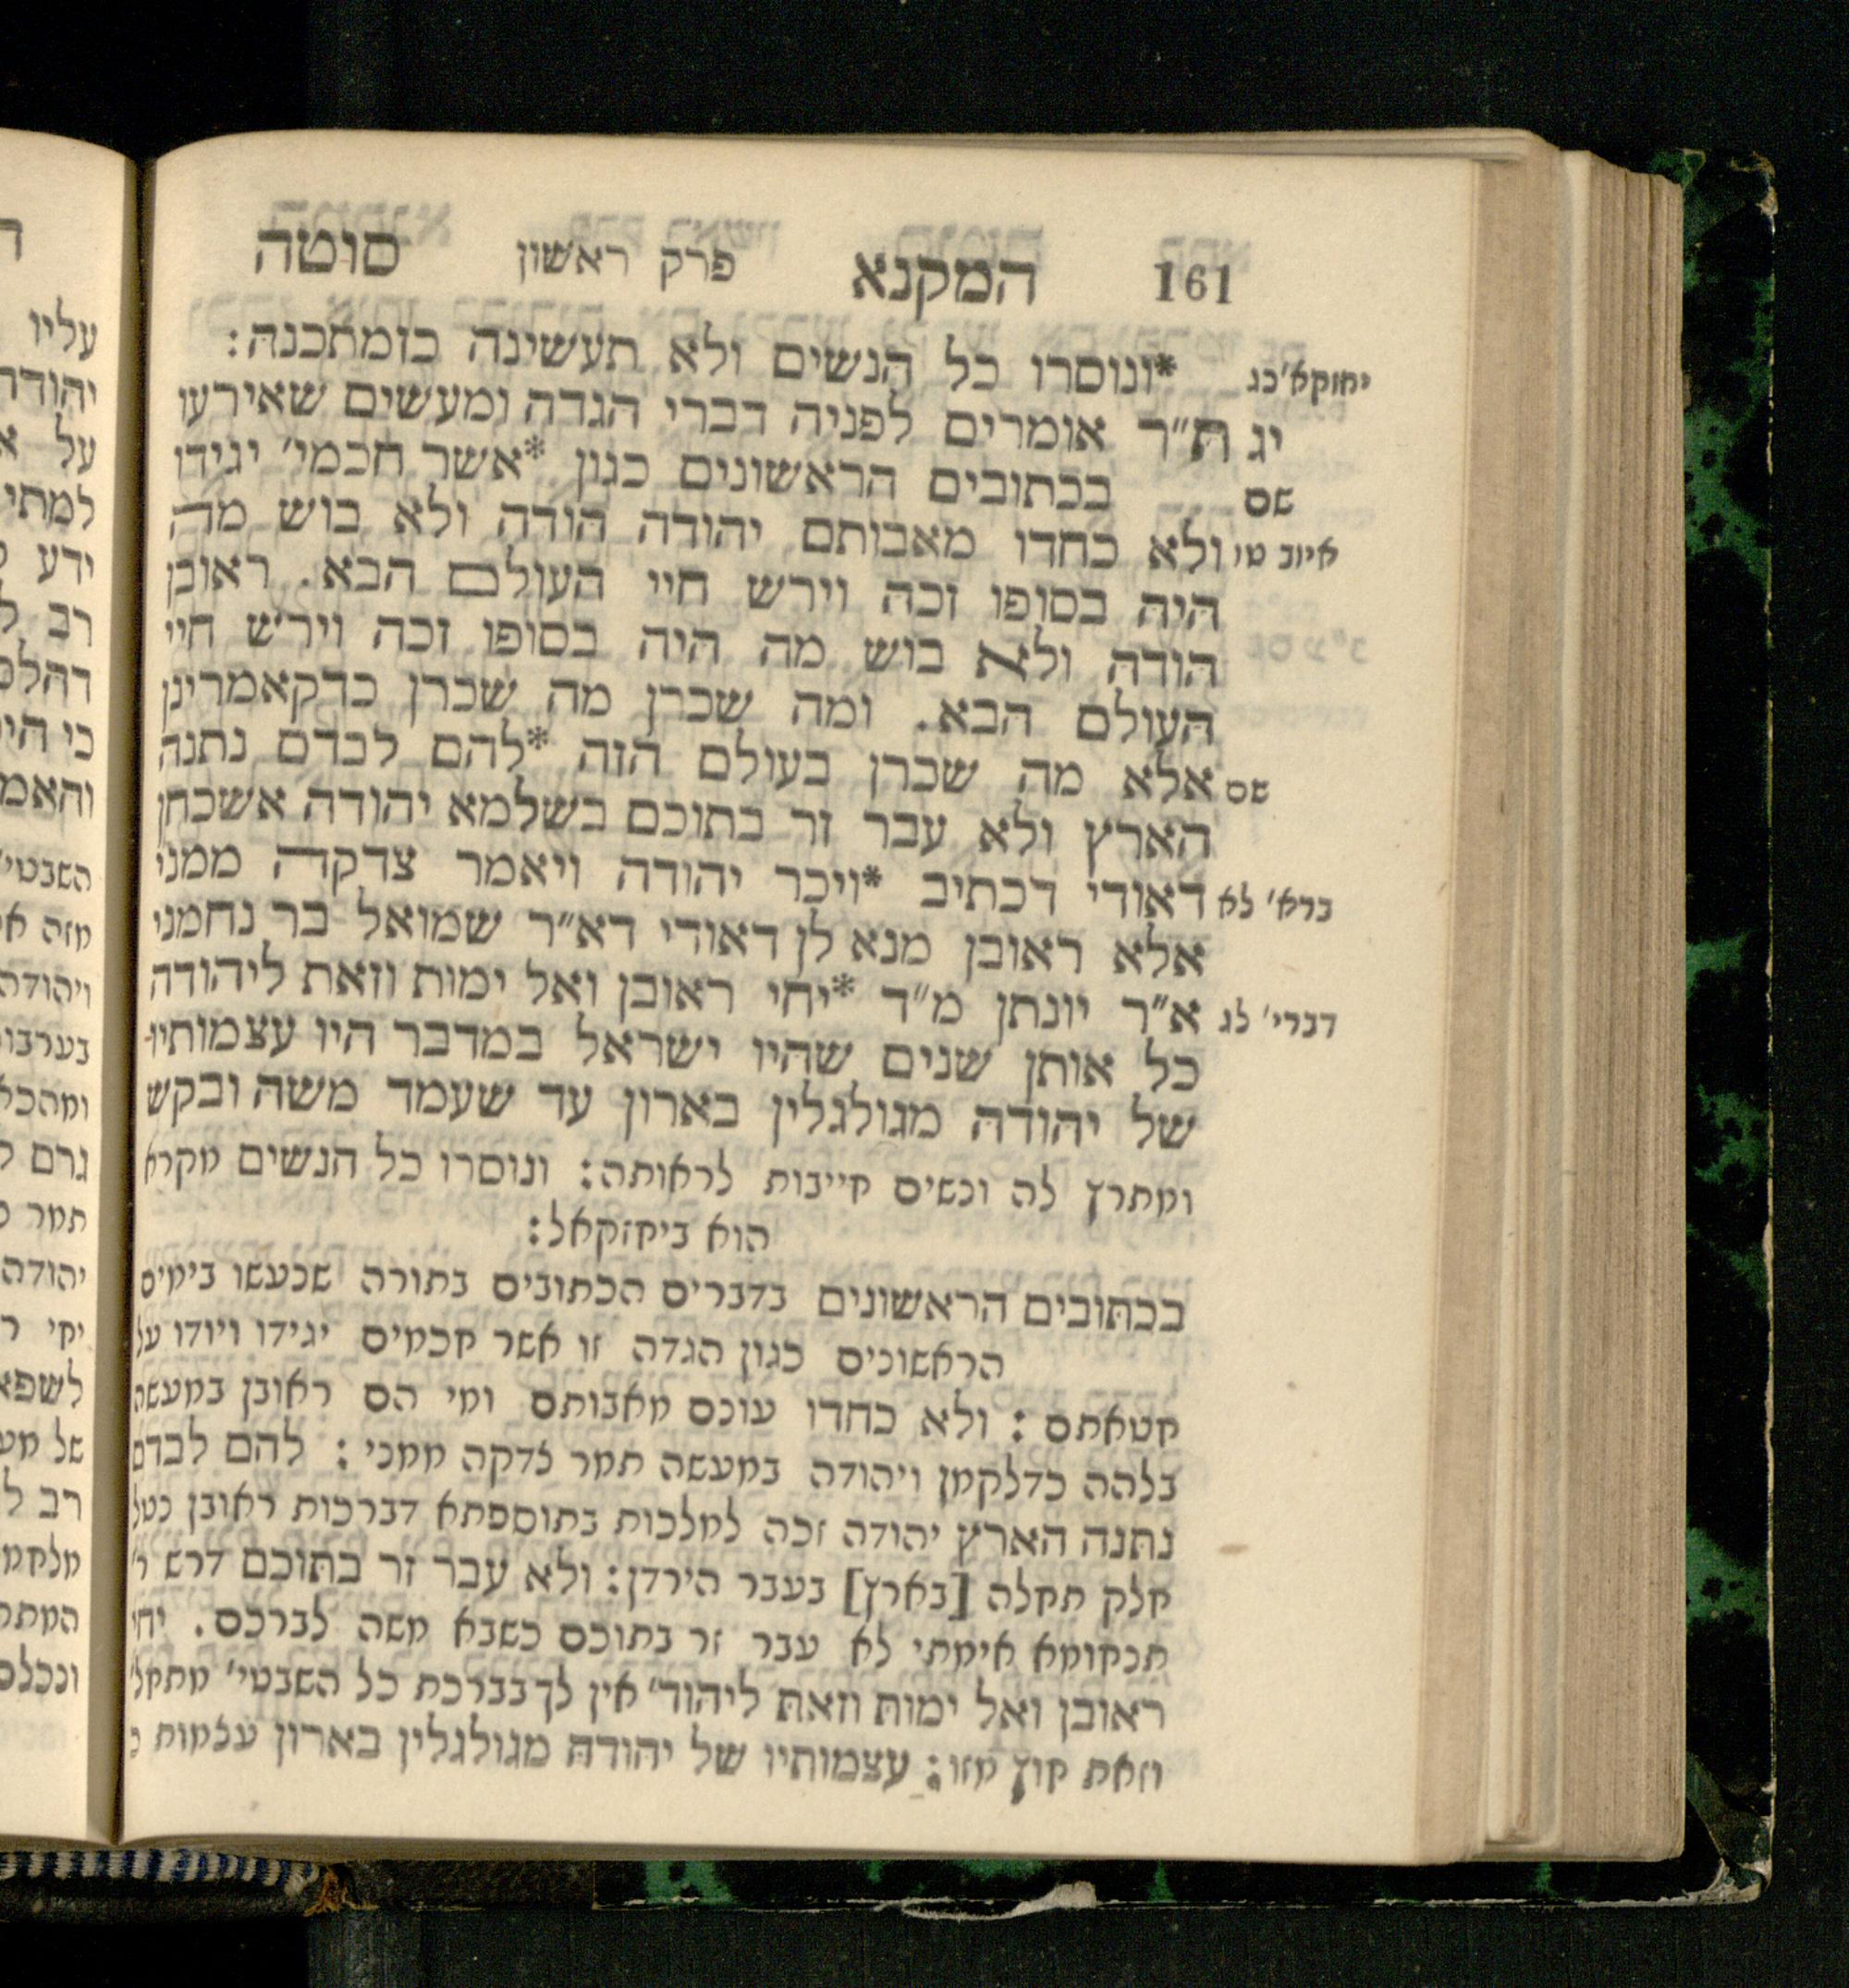 161 המקנא פרק ראשון סוטה
יחזקא' כג *ונוסרו כל הנשים ולא תעשינה כזמתכנה:
יג ת"ר אומרים לפניה דברי הגדה ומעשים שאירעו
שם בכתובים הראשונים כגון *אשר חכמי' יגידו
איוב טו ולא כחדו מאבותם יהודה הודה ולא בוש מה
היה בסופו זכה וירש חיי העולם הבא. ראובן
הודה ולא בוש מה היה בסופו זכה וירש חיי
העולם הבא. ומה שכרן מה שכרן כדקאמרינן
שם אלא מה שכרן בעולם הזה *להם לבדם נתנה
הארץ ולא עבר זר בתוכם בשלמא יהודה אשכחן
ברא' לא דאודי דכתיב *ויכר יהודה ויאמר צדקה ממני
אלא ראובן מנא לן דאודי דא"ר שמואל בר נחמני
דברי' לג א"ר יונתן מ"ד *יחי ראובן ואל ימות וזאת ליהודה
כל אותן שנים שהיו ישראל במדבר היו עצמותיו
של יהודה מגולגלין בארון עד שעמד משה ובקש
ומתרץ לה ונשים חייבות לראותה: ונוסרו כל הנשים מקרא
הוא ביחזקאל:
בכתובים הראשונים בדברים הכתובים בתורה שנעשו בימים
הראשונים כגון הגדה זו אשר חכמים יגידו ויודו על
חטאתם: ולא כחדו עונם מאבותם ומי הם ראובן במעשה
בלהה כדלקמן ויהודה במעשה תמר צדקה ממני: להם לבדם
נתנה הארץ יהודה זכה למלכות בתוספתא דברכות ראובן נטל
חלק תחלה [בארץ] בעבר הירדן: ולא עבר זר בתוכם דרש ר'
תנחומא אימתי לא עבר זר בתוכם כשבא משה לברכם. יחי
ראובן ואל ימות וזאת ליהוד' אין לך בברכת כל השבטי' מתחל'
וזאת חוץ מזו: עצמותיו של יהודה מגולגלין בארון עצמות
עליו
על
למתי
ידע
רב
כי
גרם
תמר
יהודה
יחי
של
רב